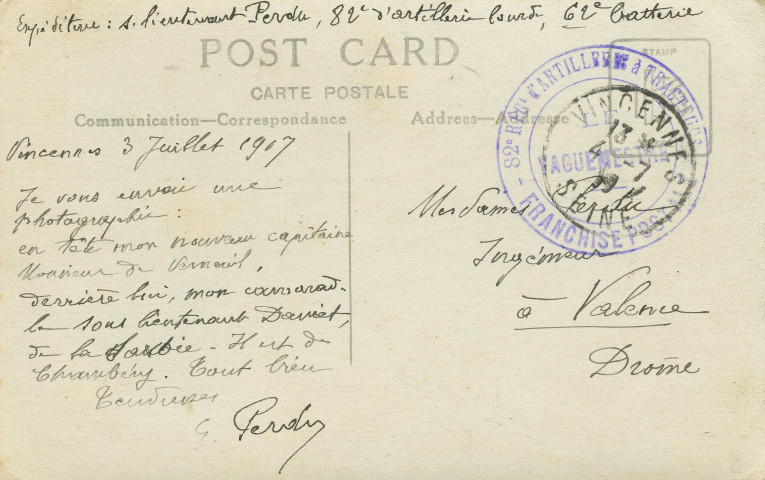 Expéditeur : s. lieutenant Perdu, 82e d'artillerie lourde, 62e batterie
POST CARD
CARTE POSTALE
STAMP
Communication—Correspondance
Address—Adresse
82e RÉGt D'ARTILLERIE à TRACTEURS
LE
VAGUEMESTRE
FRANCHISE POSTALE
VINCENNES
13
4 - 7
SEINE
Vincennes 3 Juillet 1917
Je vous envoie une
photographie :
en tête mon nouveau capitaine
Monsieur de Verneuil,
derrière lui, mon camarade
le sous lieutenant
de la Savoie - Il est de
Chambéry. Tout bien
Tendresses
G. Perdu
Mesdames Perdu
Ingénieur
à Valence
Drôme